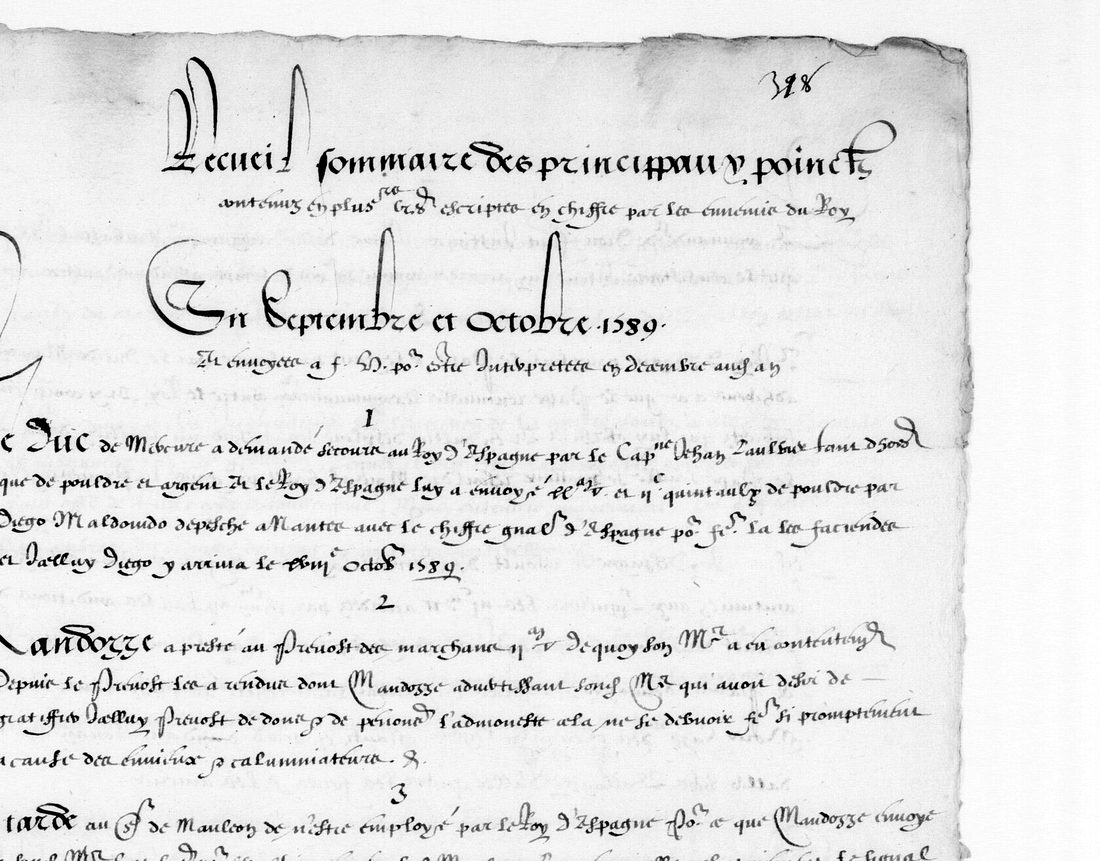 398
Recueil sommaire des princippaux poinctz
contenuz en plusrs lrēs escriptes en chiffre par les ennemis du Roy
En Septembre et Octobre .1589.
Et envoyees a f. V. por estre Interpretees en decembre audit an
1
e Duc de Mercure a demandé secours au Roy d'Espagne par le Capne Jehan tant d'hom
que de pouldre et argent Et le Roy d'Espagne luy a envoyé xxm et iic quintaulx de pouldre par
Diego Maldonado depesché a Nantes avec le chiffre gnal d'Espagne por fe la les faciendes
et Icelluy Diego y arriva le xviiie Octob 1589.
2
andozze a presté au Prevost des marchans iim de quoy son Mre a eu contentem
Depuis le Prevost les a rendus dont Mandozze advertissant sond Mre qui avoit desir de —
gratiffier Icelluy Prevost de dons de l'admoneste cela ne se debvoir fe si promptement
a cause des envieux & calumniateurs. &.
3
tarde au Sr de Mauleon de n'estre employé par le Roy d'Espagne Por ce que Mandozze envoye